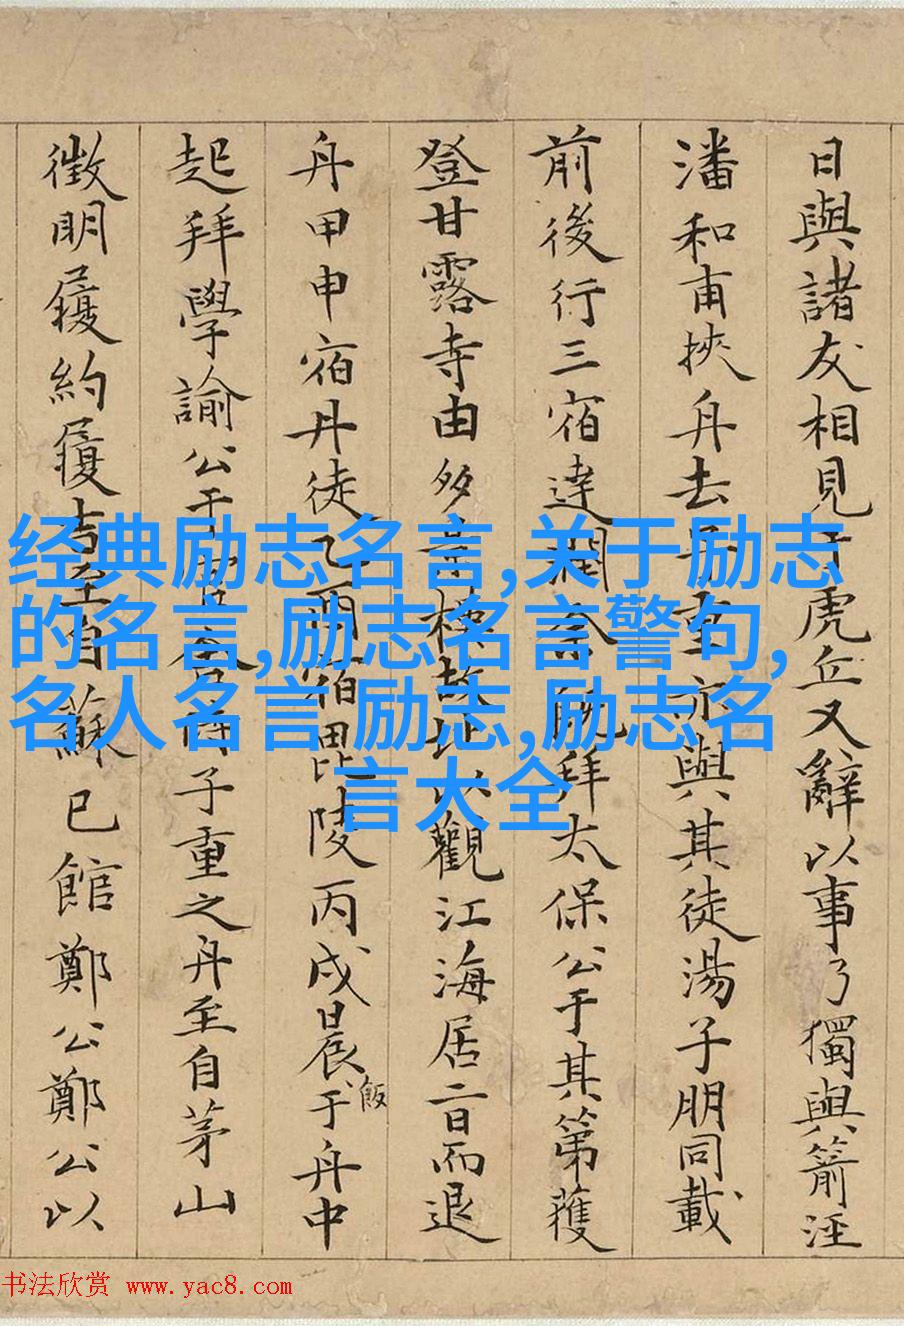 日與諸友相見于虎丘又辭以事乃獨與箭涇
潘和甫挾舟去子重亦與其徒湯子朋同載
前後行三宿達潤既拜太保公于其第獲
登甘露寺由多景樓故址以觀江海居二日而退
舟甲申宿丹徒乙酉宿毘陵丙戌晨飯于舟中
起拜學諭公于子重之舟至自茅山
徵明履約履吉至自蘇已館鄭公鄭公以
经典励志名言,关于励志
的名言,励志名言警句,
名人名言 励志,励志名
言大全
书法欣赏 www.yac8.com